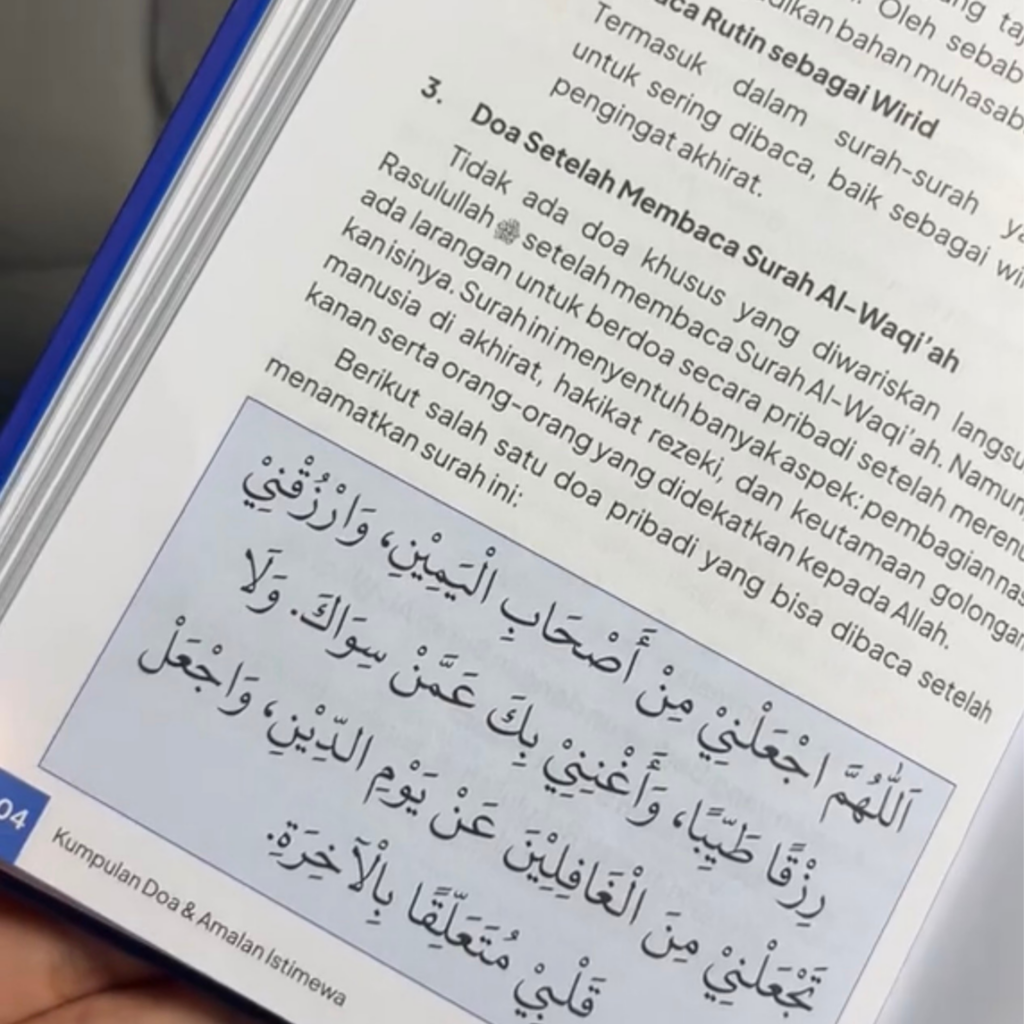 taj
Oleh sebab
dikan bahan muhasab
aca Rutin sebagai Wirid
Termasuk dalam surah-surah ya
untuk sering dibaca, baik sebagai wir
pengingat akhirat.
3. Doa Setelah Membaca Surah Al-Waqi'ah
Tidak ada doa khusus yang diwariskan langsu
Rasulullah ﷺ setelah membaca Surah Al-Waqi'ah. Namun
ada larangan untuk berdoa secara pribadi setelah merenu
kan isinya. Surah ini menyentuh banyak aspek: pembagian nas
manusia di akhirat, hakikat rezeki, dan keutamaan golongan
kanan serta orang-orang yang didekatkan kepada Allah.
Berikut salah satu doa pribadi yang bisa dibaca setelah
menamatkan surah ini:
اَللّٰهُمَّ اجْعَلْنِيْ مِنْ أَصْحَابِ الْيَمِيْنِ، وَارْزُقْنِيْ
رِزْقًا طَيِّبًا، وَأَغْنِنِيْ بِكَ عَمَّنْ سِوَاكَ. وَلَا
تَجْعَلْنِيْ مِنَ الْغَافِلِيْنَ عَنْ يَوْمِ الدِّيْنِ، وَاجْعَلْ
قَلْبِيْ مُتَعَلِّقًا بِالْآخِرَةِ.
04 Kumpulan Doa & Amalan Istimewa